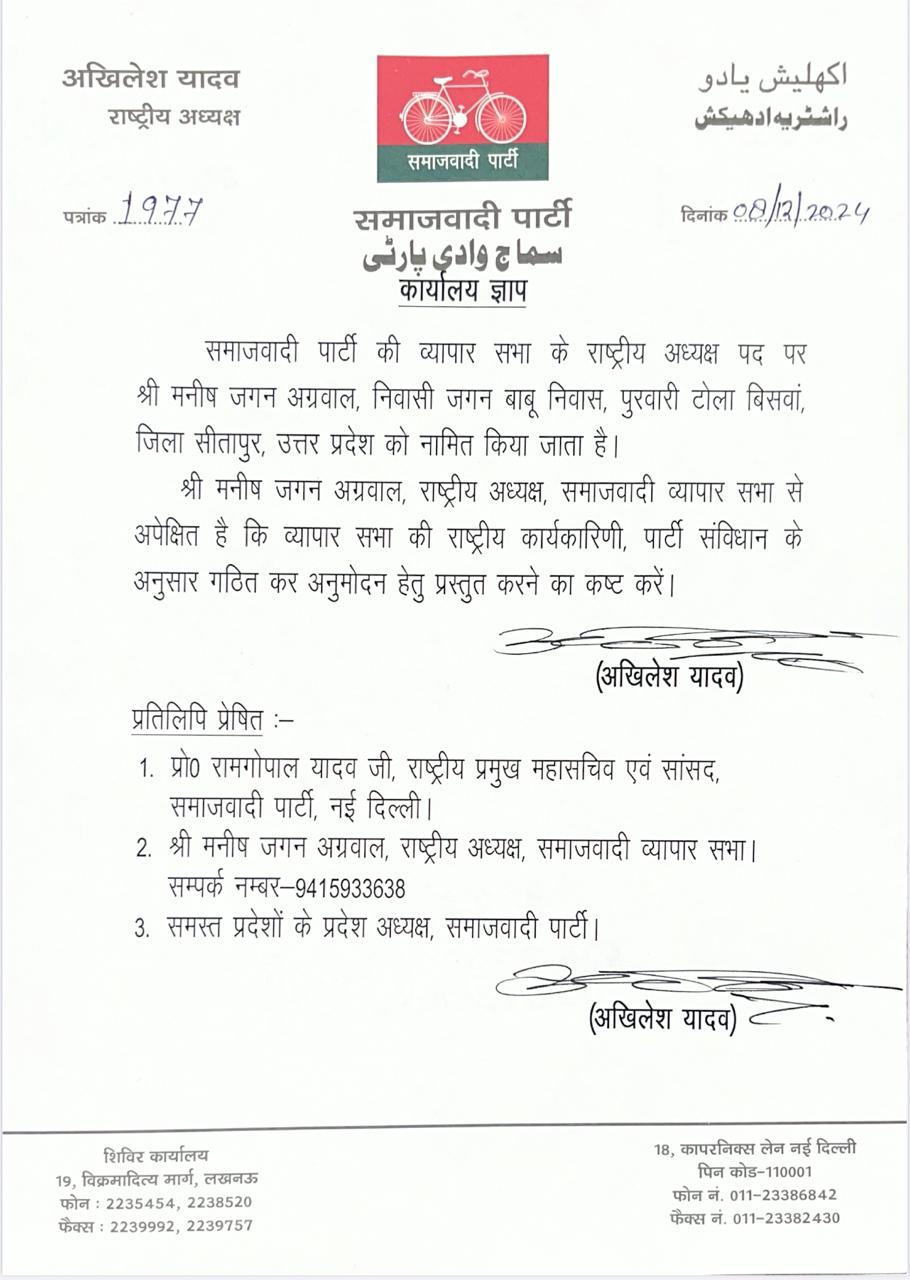 अखिलेश यादव
राष्ट्रीय अध्यक्ष
समाजवादी पार्टी
اکھلیش یادو
راشٹریہ ادھیکش
पत्रांक 1977
दिनांक 08/12/2024
समाजवादी पार्टी
سماج وادی پارٹی
कार्यालय ज्ञाप
समाजवादी पार्टी की व्यापार सभा के राष्ट्रीय अध्यक्ष पद पर
श्री मनीष जगन अग्रवाल, निवासी जगन बाबू निवास, पुरवारी टोला बिसवां,
जिला सीतापुर, उत्तर प्रदेश को नामित किया जाता है।
श्री मनीष जगन अग्रवाल, राष्ट्रीय अध्यक्ष, समाजवादी व्यापार सभा से
अपेक्षित है कि व्यापार सभा की राष्ट्रीय कार्यकारिणी, पार्टी संविधान के
अनुसार गठित कर अनुमोदन हेतु प्रस्तुत करने का कष्ट करें।
(अखिलेश यादव)
प्रतिलिपि प्रेषित :–
1. प्रो0 रामगोपाल यादव जी, राष्ट्रीय प्रमुख महासचिव एवं सांसद,
समाजवादी पार्टी, नई दिल्ली।
2. श्री मनीष जगन अग्रवाल, राष्ट्रीय अध्यक्ष, समाजवादी व्यापार सभा।
सम्पर्क नम्बर–9415933638
3. समस्त प्रदेशों के प्रदेश अध्यक्ष, समाजवादी पार्टी।
(अखिलेश यादव)
शिविर कार्यालय
19, विक्रमादित्य मार्ग, लखनऊ
फोन : 2235454, 2238520
फैक्स : 2239992, 2239757
18, कापरनिक्स लेन नई दिल्ली
पिन कोड–110001
फोन नं. 011-23386842
फैक्स नं. 011-23382430